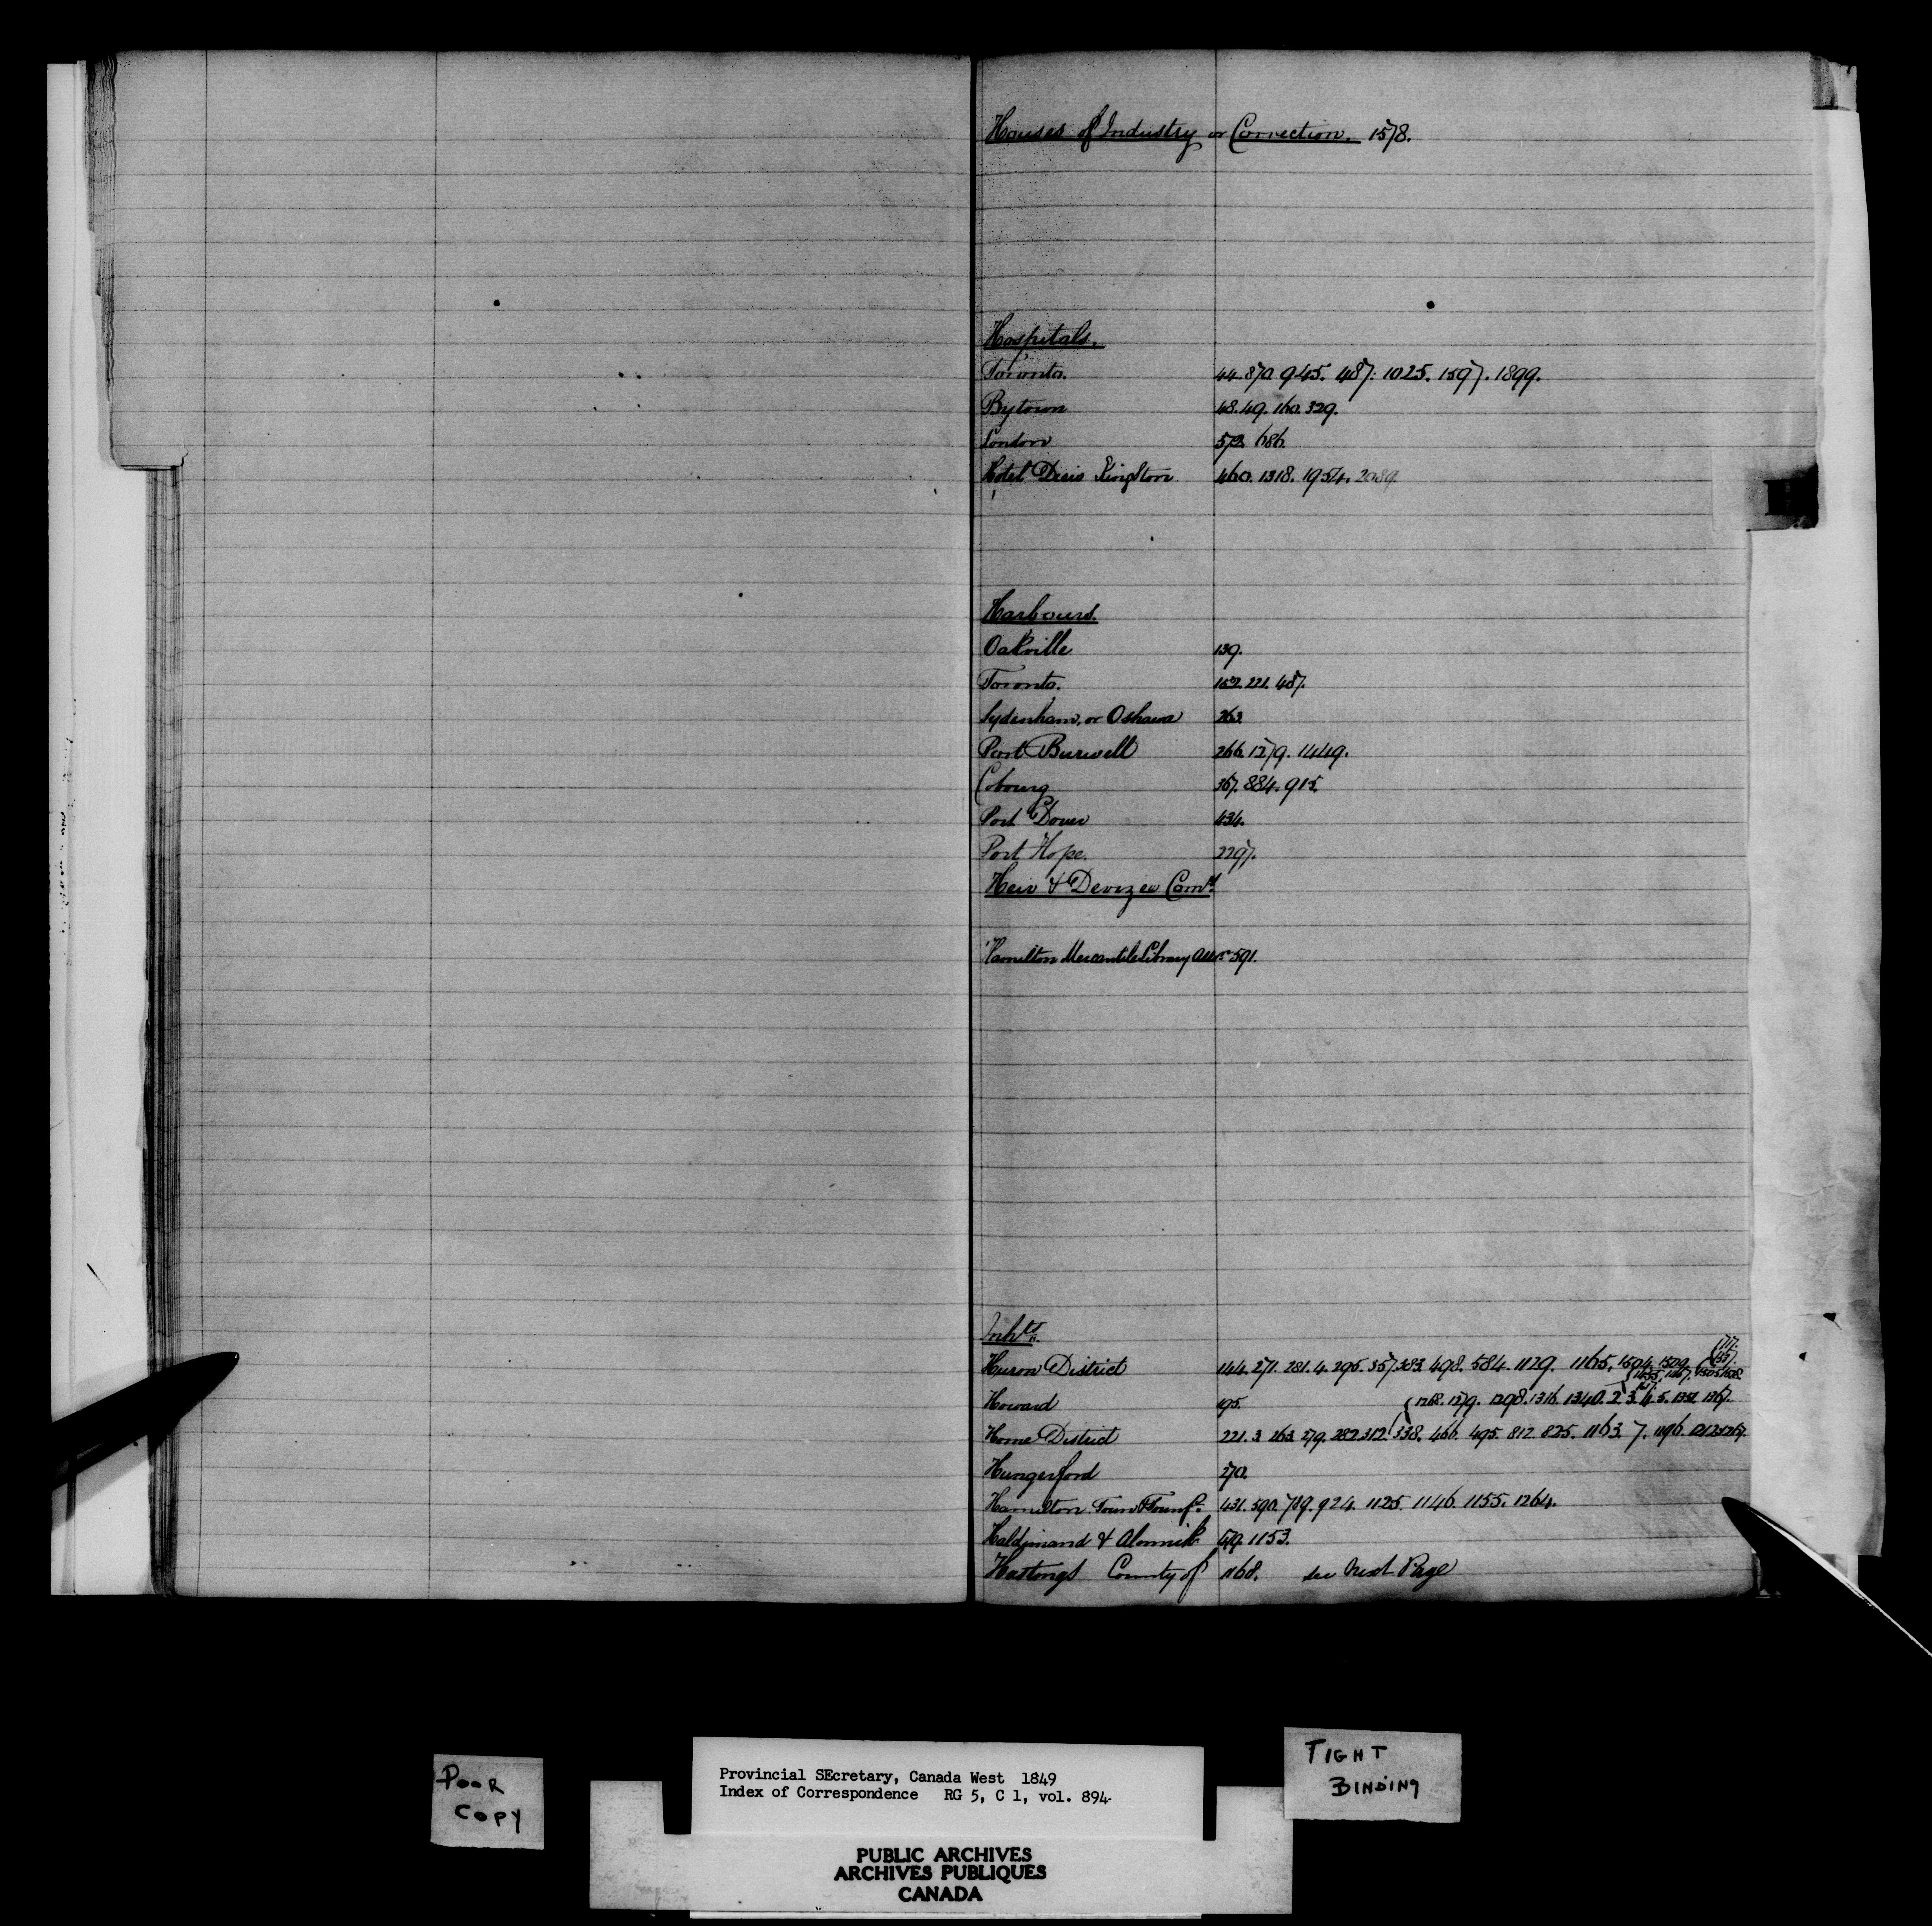 Houses of Industry or Correction. 1578.
Hospitals.
Toronto. 44. 870. 945. 487. 1025. 1597. 1899.
Bytown 48. 49. 160. 329.
London 572. 686.
Hotel Dieu Kingston 460. 1318. 1954. 2089.
Harbours.
Oakville 139.
Toronto. 152. 221. 487.
Sydenham, or Oshawa 263.
Port Burwell 266. 1279. 1449.
Cobourg 367. 884. 915.
Port Dover 434.
Port Hope. 2297.
Heir & Devizee Comn.
Hamilton Mercantile Library Assn 591.
Inhts
Huron District 144. 271. 281. 4. 295. 357. 383. 498. 584. 1129. 1165. 1504. 1509.
Howard 195. 1268. 1279. 1298. 1316. 1340. 2. 3. 4. 5. 1352. 1367.
Home District 221. 3. 263. 279. 282. 312. 338. 466. 495. 812. 825. 1163. 7. 1196.
Hungerford 270.
Hamilton Town & Townsp. 431. 590. 789. 924. 1125. 1146. 1155. 1264.
Haldimand & Alnwick 1153.
Hastings County of 1168. see Next Page
POOR
COPY
TIGHT
BINDING
Provincial SEcretary, Canada West 1849
Index of Correspondence RG 5, C 1, vol. 894
PUBLIC ARCHIVES
ARCHIVES PUBLIQUES
CANADA